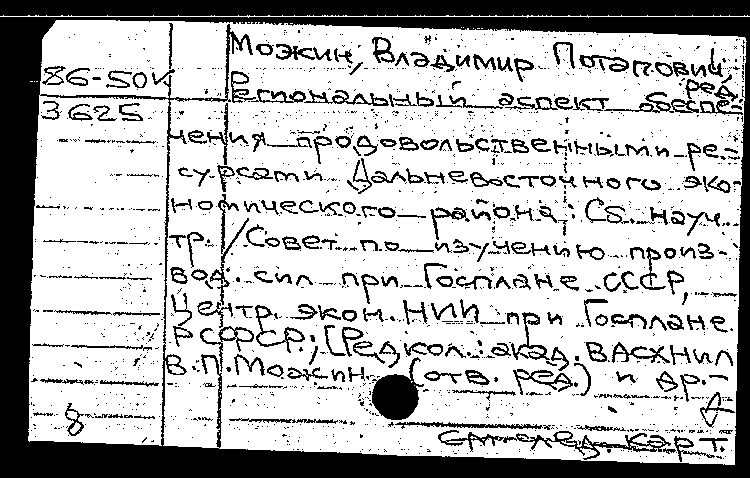 Можин, Владимир Потапович,
ред.
86-50К
Региональный аспект обеспе-
3625
чения продовольственными ре-
сурсами Дальневосточного эко-
номического района: Сб. науч.
тр. / Совет по изучению произ-
вод. сил при Госплане СССР,
Центр. экон. НИИ при Госплане
РСФСР; [Редкол.: акад. ВАСХНИЛ
В.П. Можин (отв. ред.) и др.-
8
см. след. карт.